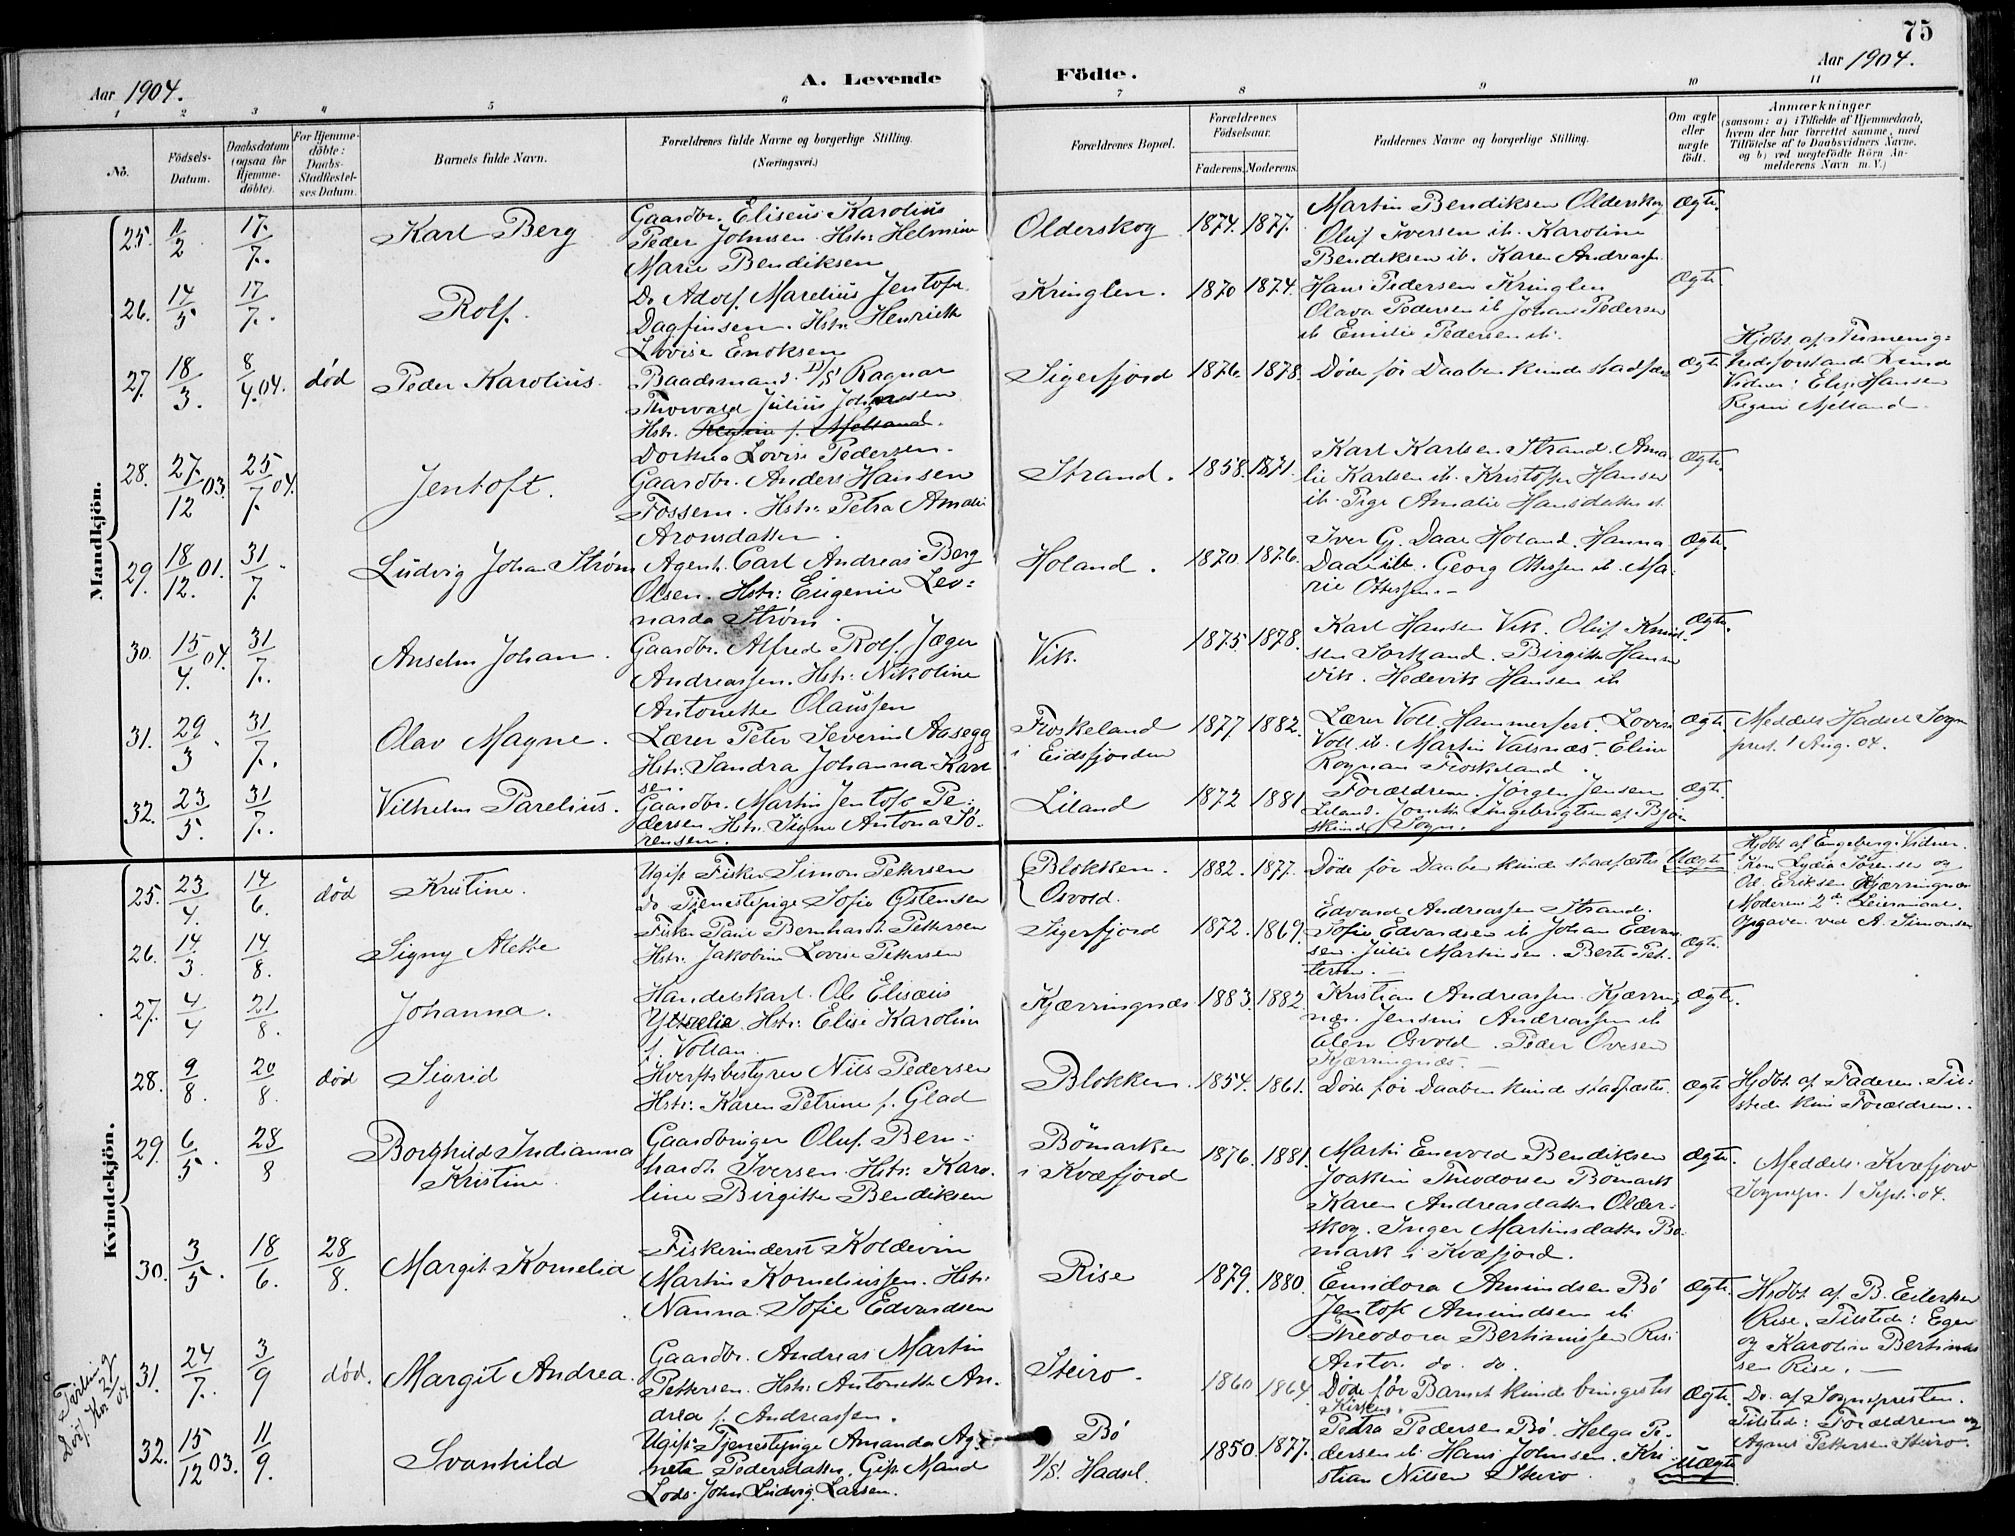 75
Aar 1904.
A. Levende Födte.
Aar 1904.
1 2 3 4 5 6 7 8 9 10 11
No.
Födsels-Datum.
Daabsdatum (ogsaa for Hjemme-döbte).
For Hjemme-döbte: Daabs-Stadfæstel-ses Datum.
Barnets fulde Navn.
Forældrenes fulde Navne og borgerlige Stilling. (Næringsvei.)
Forældrenes Bopæl.
Forældrenes Födselsaar.
Faderens. Moderens.
Faddernes Navne og borgerlige Stilling.
Om ægte eller uægte födt.
Anmærkninger
(saasom: a) i Tilfælde af Hjemmedaab, hvem der har forrettet samme, med Tilföielse af to Daabsvidners Navne, og b) ved uægtefödte Börn An-melderens Navn m. V.)
Mandkjön.
25. 11/2 17/7. Karl Berg
Gaardbr. Eliseus Karolius
Peder Johnsen. Hstr. Helmine
Marie Bendiksen
Olderskog 1874. 1877.
Martin Bendiksen Olderskog
Oluf Iversen ib. Karoline
Bendiksen ib. Karen Andreass.
Ægte.
26. 14/5 17/7. Rolf.
Do Adolf Marelius Jentoft
Dagfinsen. Hstr. Henrikke
Lovise Enoksen
Kringlen. 1870 1874.
Hans Pedersen Kringlen
Olava Pedersen ib Johan Pedersen
ib Emilie Pedersen ib.
Ægte.
27. 18/3. 8/4.04. död Peder Karolius.
Baadsmand D/S Ragnar
Thorvald Julius Johansen
Hstr. Regine f. Mjelland.
Dorthea Lovise Pedersen.
Sigerfjord 1876. 1878.
Døde før Daaben kunde stadfæs
Ægte
Hjdbt. af
Vidner: Elise Hansen
Regine Mjelland.
28. 27/12 03. 25/7. 04. Jentoft.
Gaardbr. Anders Hansen
Fossem. Hstr. Petra Amalie
Aronsdatter.
Strand. 1858. 1871.
Karl Karlsen Strand, Ama
lie Karlsen ib. Kristoffer Hansen
ib. Pige Amalie Hansdatter ib.
Ægte.
29. 18/12. 01. 31/7. Ludvig Johan Strøm
Agent. Carl Andreas Berg
Olsen. Hstr: Eugenie Leo=
narda Strøm.
Holand. 1870. 1876.
Iver G. Daae Holand. Hanna
Daae ib. Georg Ottessen ib. Ma-
rie Ottessen.
Ægte.
30. 15/4. 04. 31/7. Anselm Johan.
Gaardbr. Alfred Rolf Jæger
Andreassen. Hstr: Nikoline
Antonette Olaussen
Vik. 1875. 1878.
Karl Hansen Vik. Oluf Knud
sen Sortland. Birgitte Hansen
Vik. Hedevik Hansen ib
Ægte.
31. 29/3 31/7. Olav Magne.
Lærer Peter Severin Aasegg
Hstr: Sandra Johanna Karl
sen.
Froskeland i Eidsfjorden 1877 1882.
Lærer Voll. Hammerfest. Lovise
Voll ib. Martin Valsnæs. Eline
Rognan Froskeland.
Ægte
Meddelt Hadsel Sogne
prest. 1 Aug. 04.
32. 23/5. 31/7. Vilhelm Parelius.
Gaardbr. Martin Jentoft Pe-
dersen. Hstr. Signe Antona Sö-
rensen.
Liland 1872 1881
Forældrene. Jørgen Jensen
Liland. Ingebrigtsen af Bjør
skinds Sogn.
Ægte.
Kvindekjön.
25. 23/4. 14/6. död Kristine.
Ugift Fisker Simon Pettersen
Do Tjenestepige Sofie Ostensen
Blokken. Osvold. 1882. 1877.
Døde før Daaben kunde stadfæstes
Uægte
Hjdbt. af Engeborg. Vidner.
Kone Lydia Sørensen og
Od. Eriksen Kjærringnæs
Moderens 2det Leiermaal.
Opgaven ved A. Simonsen
26. 14/3. 14/8. Signy Alette
Fisker Paul Bernhardt Pettersen
Hstr: Jakobine Lovise Pettersen
Sigerfjord 1872. 1869.
Edvard Andreassen Strand.
Sofie Edvardsen ib Johan Edvard
sen. Julie Martinsen. Berte Pet-
tersen.
Ægte.
27. 4/4 21/8. Johanna.
Handelskarl. Ole Elisæus
Hstr: Elise Karoline
f. Voltan.
Kjærringnæs 1883. 1882.
Kristian Andreassen Kjærring
næs. Jensine Andreassen ib
Elen Osvold. Peder Ovesen
Kjærringnæs.
Ægte.
28. 9/8. 20/8. död Sigrid
Hverftsbestyrer Nils Pedersen
Hstr: Karen Petrine f. Glad
Blokken. 1854. 1861.
Døde før Daaben kunde stadfæstes
Ægte
Hjdbt. af Faderen. Til=
stede kun Forældrene.
29. 6/5. 28/8 Borghild Indianna Kristine.
Gaardbruger Oluf Bern-
hardt Iversen. Hstr: Karo-
line Birgitte Bendiksen
Bömarken i Kvæfjord 1876. 1881.
Martin Enevold Bendiksen
Joakkim Theodorsen Bömark
Karen Andreasdatter Older-
skog. Inger Martinsdatter Bö
mark i Kvæfjord.
Ægte.
Meddelt Kvæfjord
Sognepr. 1 Sept. 04.
30. 3/5. 18/6. 28/8. Margit Kornelia
Fiskerinderst Koldevin
Martin Korneliussen. Hstr:
Nanna Sofie Edvardsen
Rise 1879. 1880.
Emidora Amundsen Bö
Jentoft Amundsen ib.
Theodora Bertiniussen Rise
Anton do. do.
Ægte.
Hjdbt. af B. Eilertsen
Rise. Tilstede: Egen
og Karoline Bertinius
sen Rise.
31. 24/7. 3/9 död. Margit Andrea.
Gaardbr. Andreas Martin
Pettersen. Hstr: Antonette An-
drea f. Andreassen.
Steiro. 1860 1864
Døde før Barnet kunde bringes til
Kirken.
Ægte.
Do. af Sognepresten.
Tilstede: Forældrene og
Agnes Pettersen Steiro
32. 15/12 03. 11/9. Svanhild
Ugift Tjenestepige Amanda Ag-
nete Pedersdatter. Gift Mand
Lods John Ludvig Larsen.
Bö Hadsel. 1850. 1877.
Petra Pedersen Bö. Helga Pe-
dersen ib. Hans Johnsen. Kri
stian Nilsen Steiro
Uægte